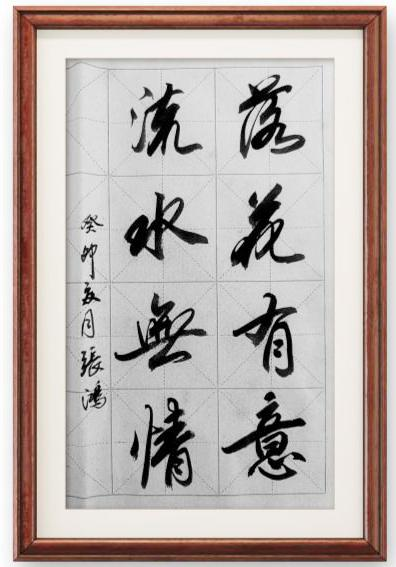 落花有意
流水無情
癸卯夏月張鴻